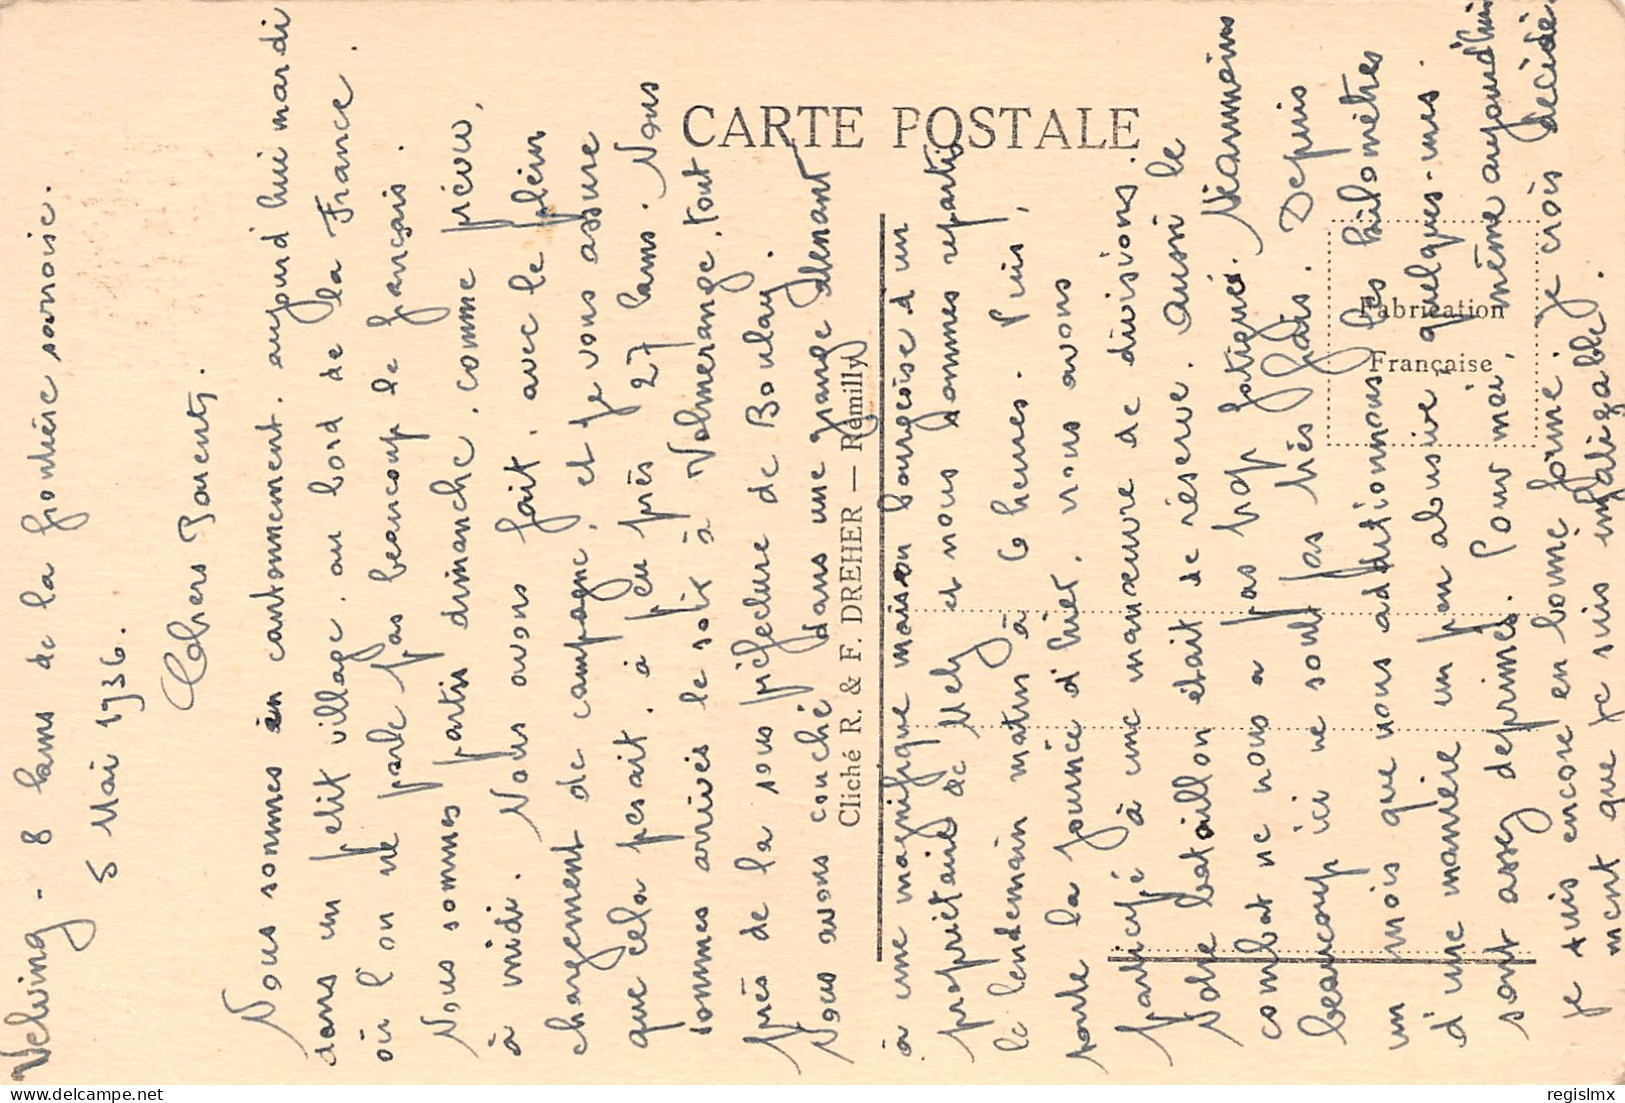 Velving - 8 kms de la frontière sarroise.
5 Mai 1936.
Chers Parents,
Nous sommes en cantonnement, aujourd'hui mardi
dans un petit village, au bord de la France
où l'on ne parle pas beaucoup le français.
Nous sommes partis dimanche, comme prévu,
à midi. Nous avons fait, avec le plein
chargement de campagne, et je vous assure
que cela pesait, à peu près 27 kms. Nous
sommes arrivés le soir à Volmerange, tout
près de la sous préfecture de Boulay.
Nous avons couché dans une grange attenant
à une magnifique maison bourgeoise d'un
propriétaire de Metz et nous sommes repartis
le lendemain matin à 6 heures. Puis,
toute la journée d'hier, nous avons
participé à une manœuvre de divisions.
Notre bataillon était de réserve. Aussi le
combat ne nous a pas trop fatigués. Néanmoins
beaucoup ici ne sont pas très frais. Depuis
un mois que nous additionnons les kilomètres
d'une manière un peu abusive, quelques-uns
sont assez déprimés. Pour moi, même aujourd'hui
je suis encore en bonne forme. Je crois décidé-
ment que je suis infatigable.
CARTE POSTALE
Cliché R. & F. DREHER — Rémilly
Fabrication
Française
delcampe.net
regislmx